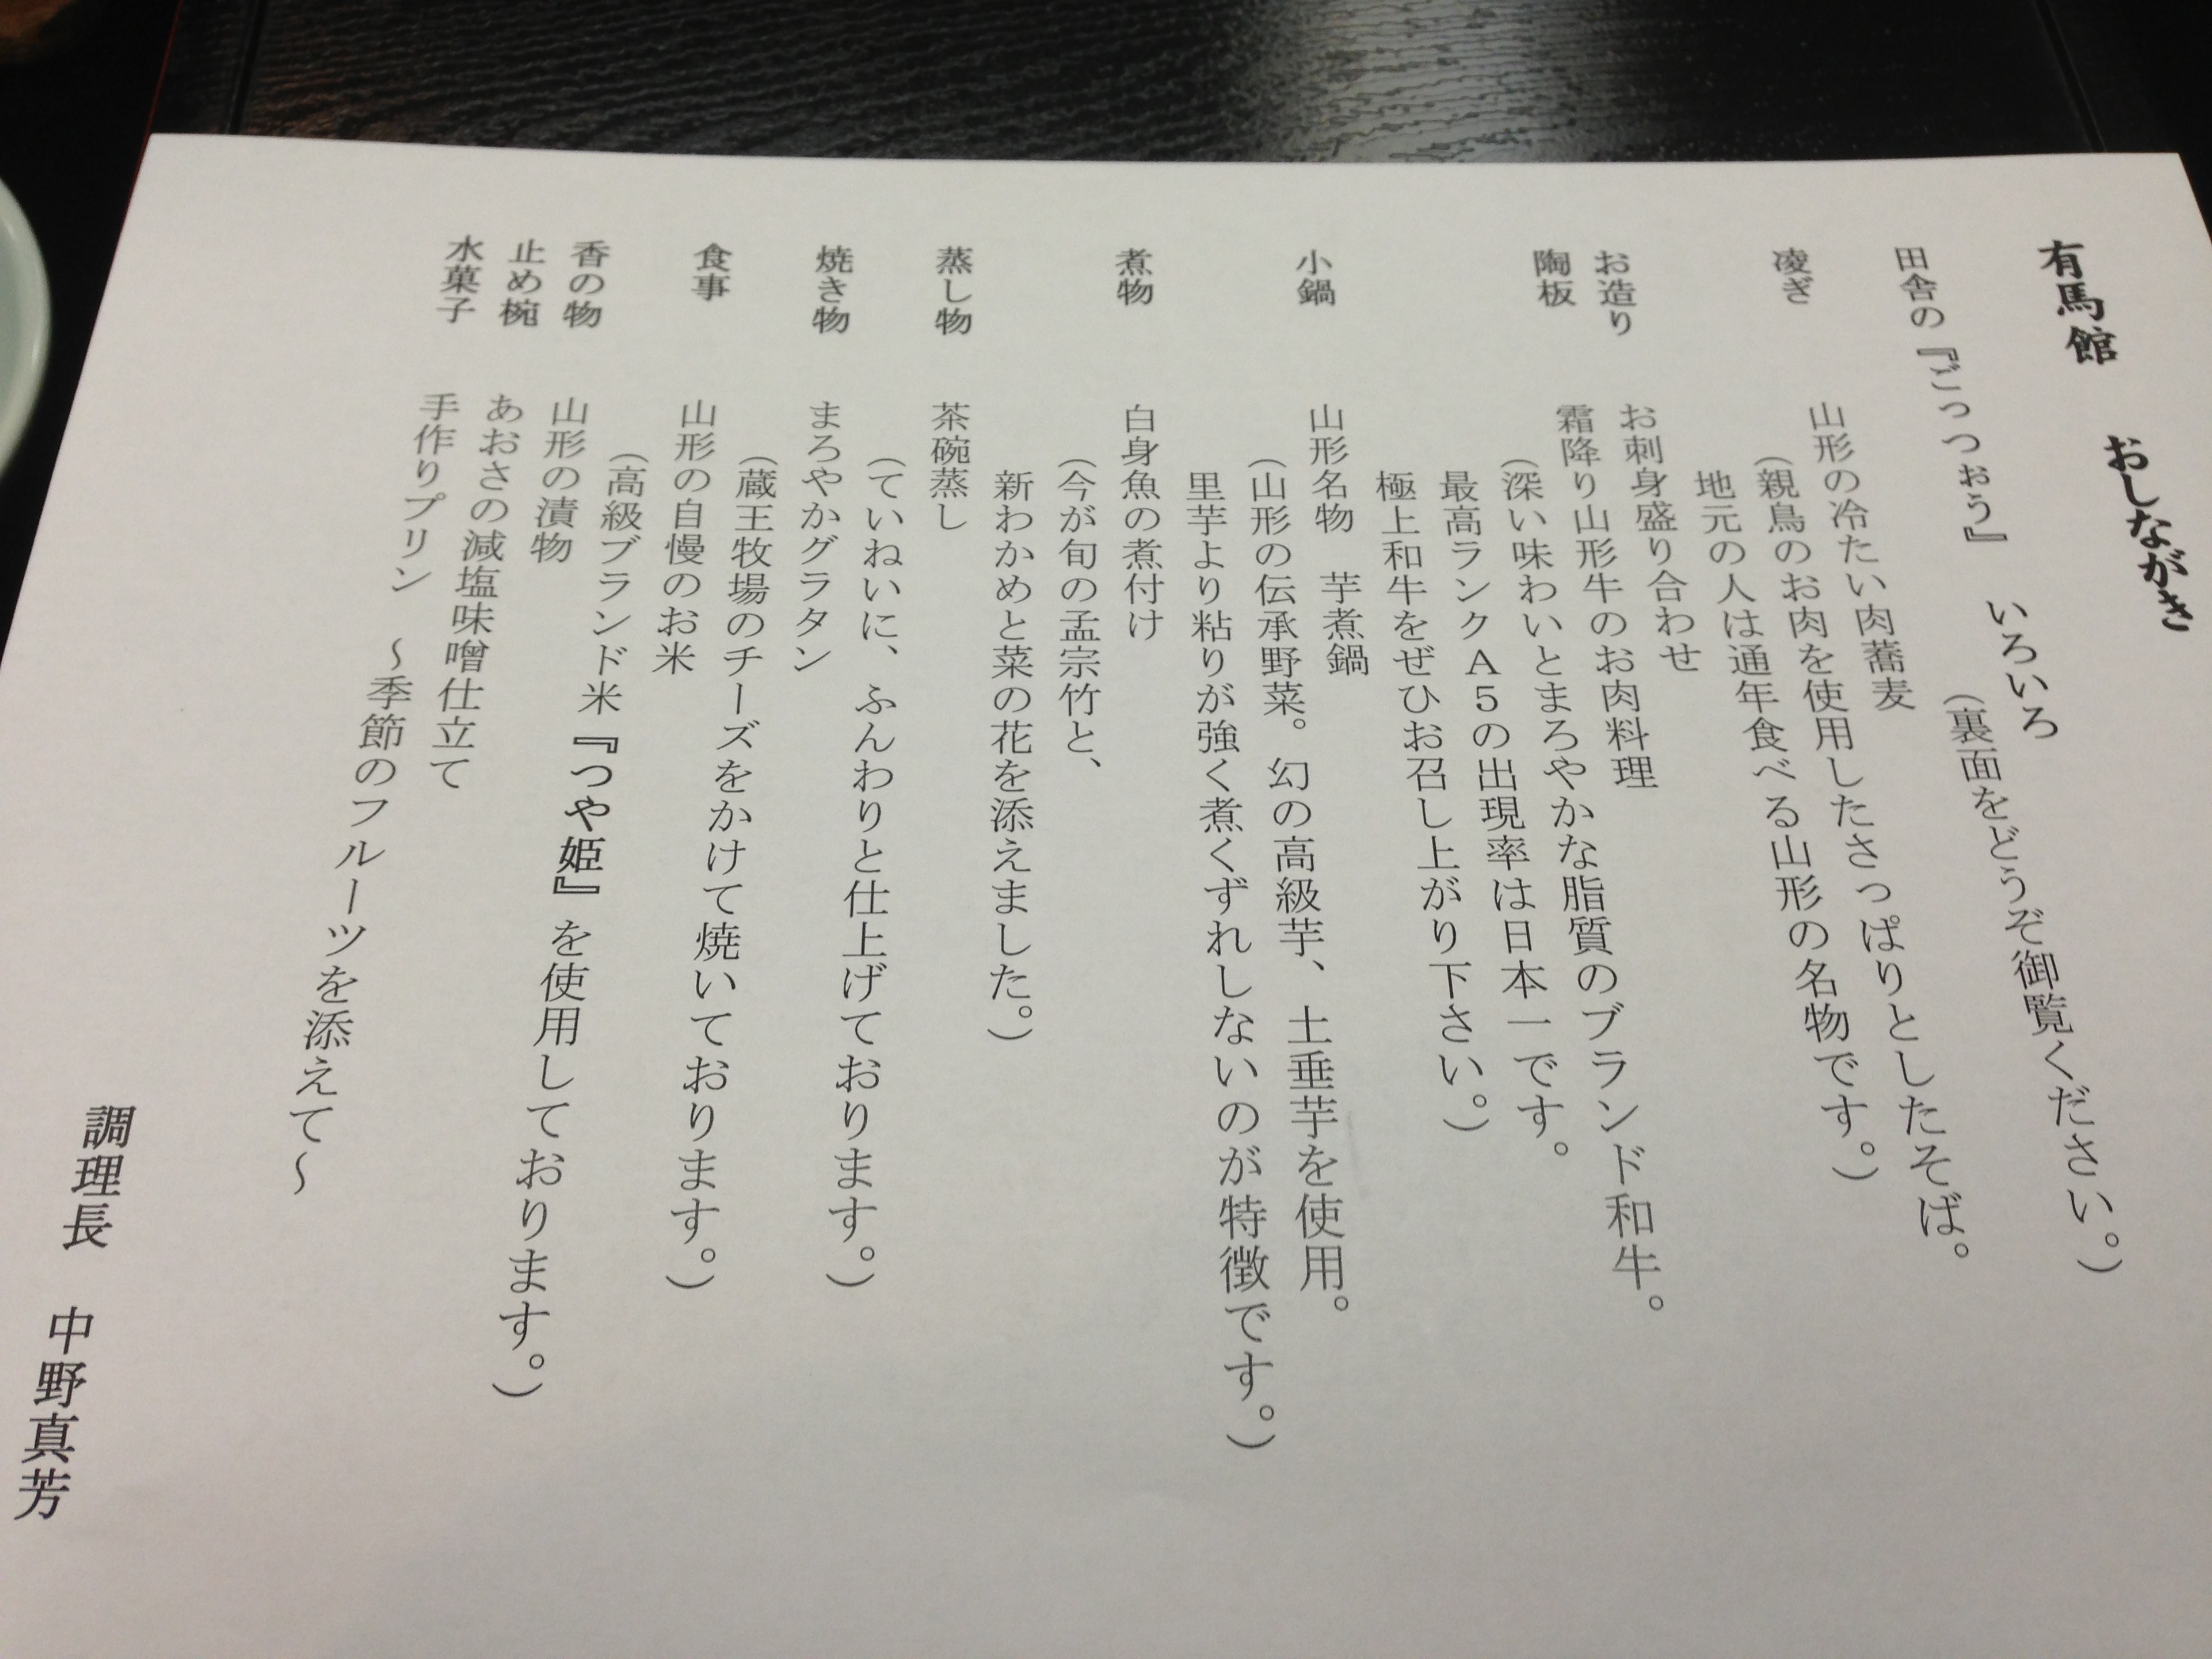 有馬館　おしながき
田舎の『ごっつぉう』　いろいろ
（裏面をどうぞ御覧ください。）
凌ぎ　山形の冷たい肉蕎麦
（親鳥のお肉を使用したさっぱりとしたそば。
地元の人は通年食べる山形の名物です。）
お造り　お刺身盛り合わせ
陶板　霜降り山形牛のお肉料理
（深い味わいとまろやかな脂質のブランド和牛。
最高ランクＡ５の出現率は日本一です。
極上和牛をぜひお召し上がり下さい。）
小鍋　山形名物　芋煮鍋
（山形の伝承野菜。幻の高級芋、土垂芋を使用。
里芋より粘りが強く煮くずれしないのが特徴です。）
煮物　白身魚の煮付け
（今が旬の孟宗竹と、
新わかめと菜の花を添えました。）
蒸し物　茶碗蒸し
（ていねいに、ふんわりと仕上げております。）
焼き物　まろやかグラタン
（蔵王牧場のチーズをかけて焼いております。）
食事　山形の自慢のお米
（高級ブランド米『つや姫』を使用しております。）
香の物　山形の漬物
止め椀　あおさの減塩味噌仕立て
水菓子　手作りプリン　～季節のフルーツを添えて～
調理長　中野真芳